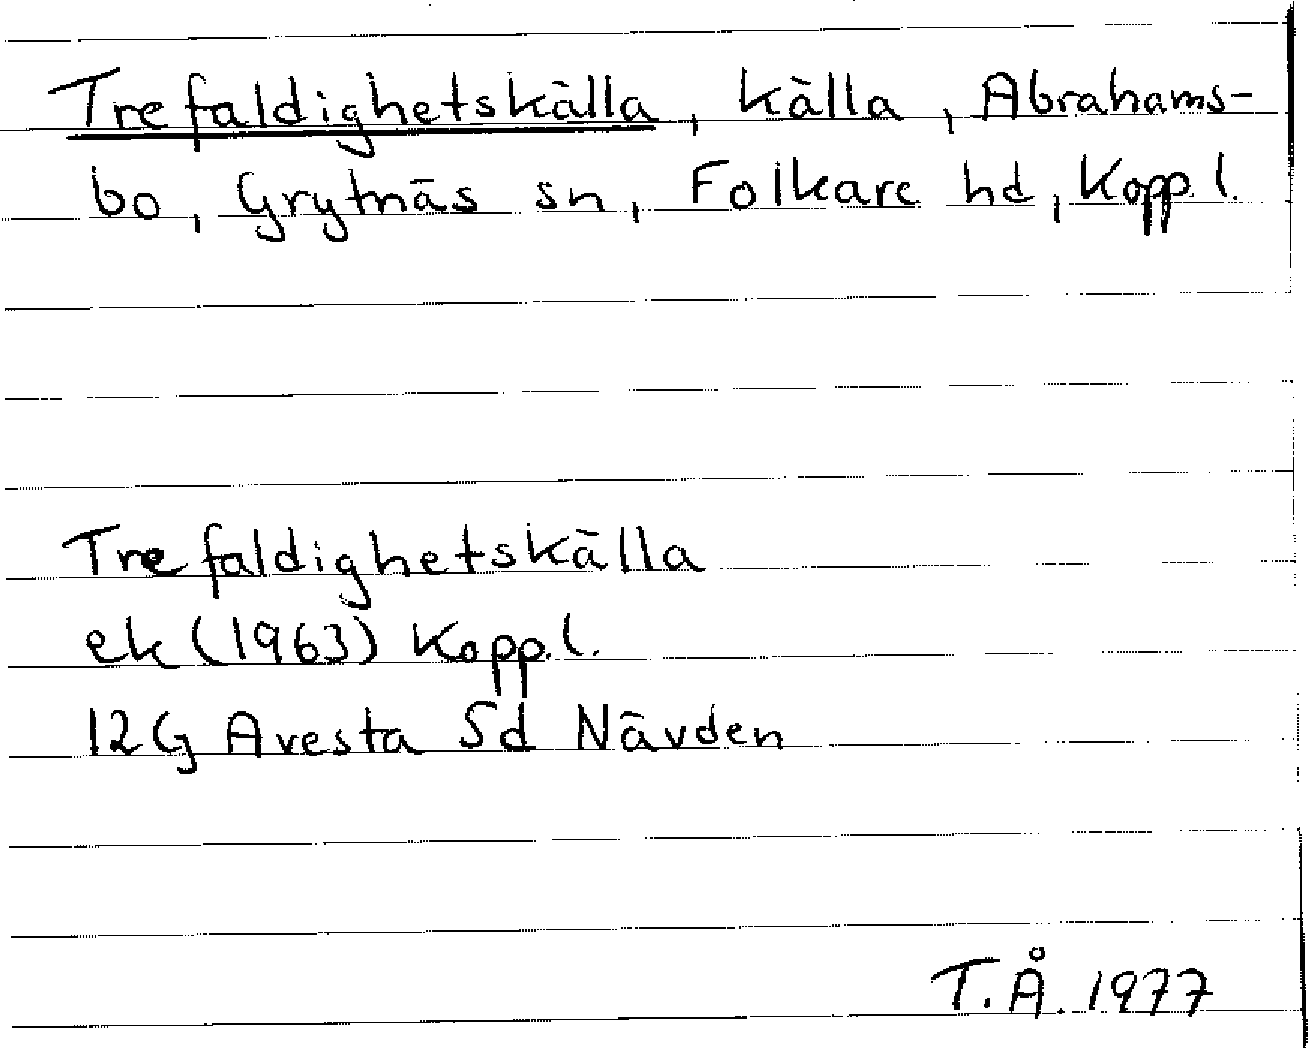 Trefaldighetskälla, källa, Abrahams-
bo, Grytnäs sn, Folkare hd, Kopp.l.
Trefaldighetskälla
ek (1963) Kopp.l.
12G Avesta Sd Nävden
T.Å. 1977